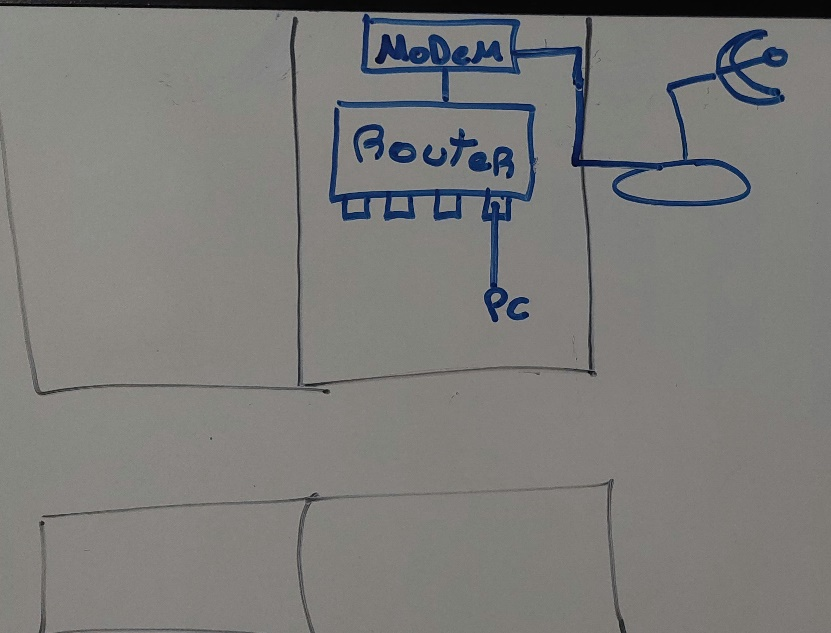 MODEM
ROUTER
PC